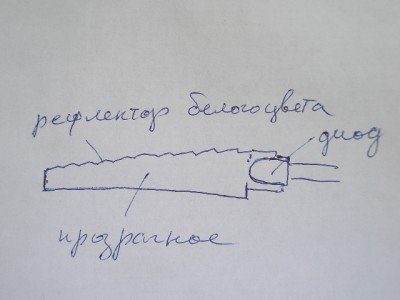 рефлектор белого цвета
диод
прозрачное